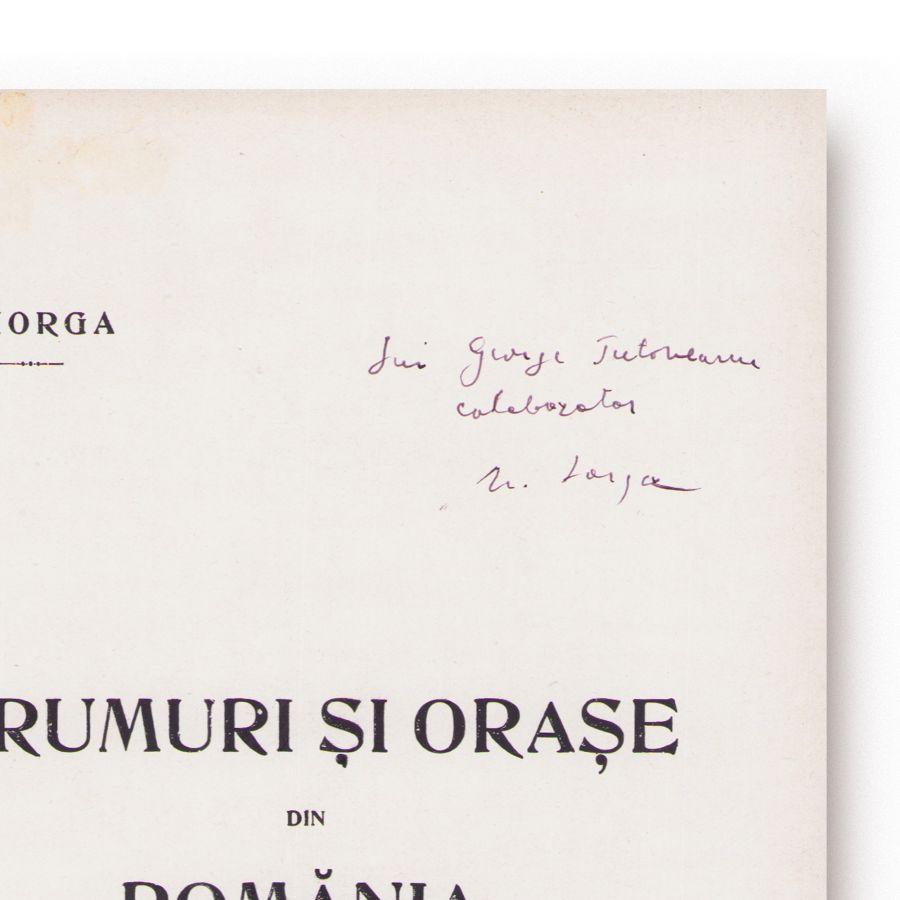 IORGA
Lui George Tutoveanu
colaborator
N. Iorga
RUMURI ȘI ORAȘE
DIN
ROMÂNIA